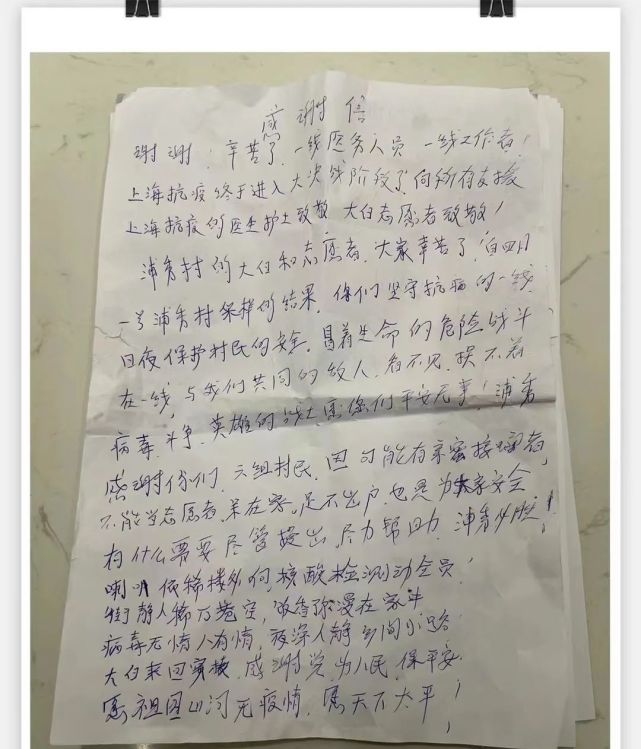 感谢信
谢谢！辛苦了，一线医务人员 一线工作者！
上海抗疫终于进入大决战阶段了，向所有支援
上海抗疫的医生护士致敬 大白志愿者致敬！
浦秀村的大白和志愿者，大家辛苦了！自四月
一号浦秀村保持的结果，你们坚守抗疫的一线
日夜保护村民的安全，冒着生命的危险战斗
在一线，与我们共同的敌人，看不见，摸不着
病毒，斗争，英雄的战士愿你们平安无事！浦秀
感谢你们，六组村民，因可能有亲密接触者，
不能当志愿者，呆在家，足不出户，也是为大家安全
有什么需要尽管提出，尽力帮助，浦秀必胜！
喇叭依稀楼外何，核酸检测动全员！
街静人稀万巷空，饭香弥漫在家
病毒无情人有情，夜深人静
大白来回 感谢党，为人民，保平安
愿祖国山河无疫情，愿天下太平！